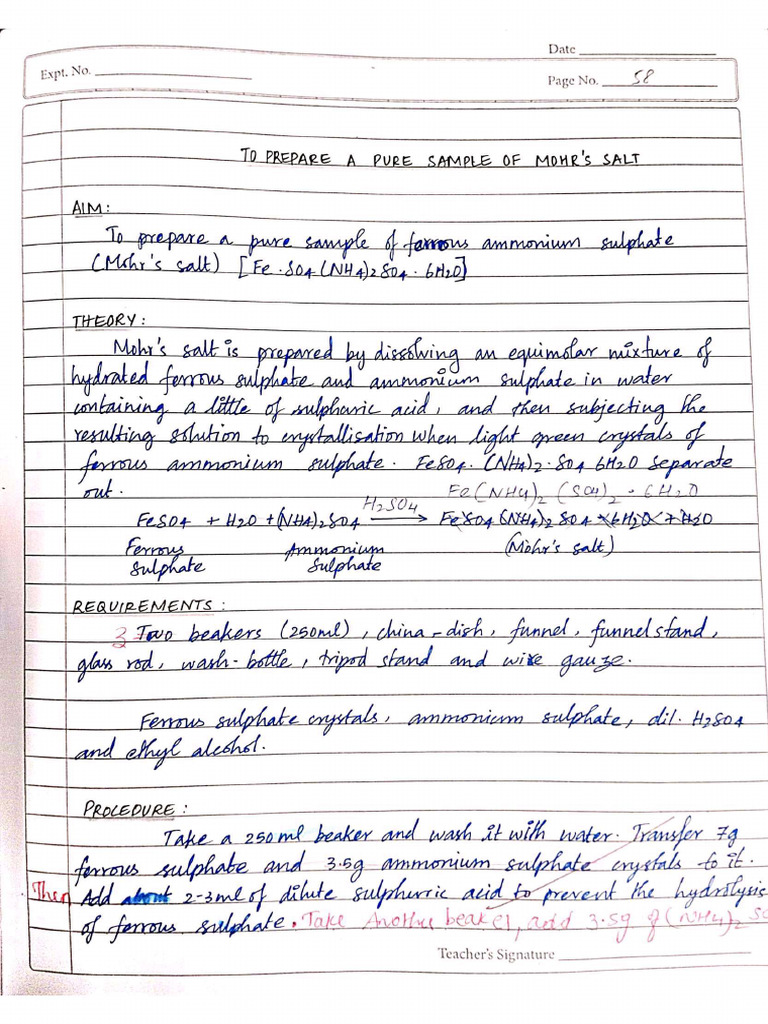 Date
Expt. No.
Page No. 58
TO PREPARE A PURE SAMPLE OF MOHR'S SALT
AIM:
To prepare a pure sample of ferrous ammonium sulphate
(Mohr's salt) [Fe.SO4 (NH4)2 SO4 . 6H2O]
THEORY:
Mohr's salt is prepared by dissolving an equimolar mixture of
hydrated ferrous sulphate and ammonium sulphate in water
containing a little of sulphuric acid, and then subjecting the
resulting solution to crystallisation when light green crystals of
ferrous ammonium sulphate. FeSO4. (NH4)2.SO4 6H2O separate
out.
Fe(NH4)2 (SO4)2 . 6H2O
FeSO4 + H2O + (NH4)2SO4 H2SO4 → FeSO4 (NH4)2 SO4 x 6H2O x 7H2O
Ferrous Ammonium (Mohr's salt)
sulphate Sulphate
REQUIREMENTS:
3 Two beakers (250ml), china-dish, funnel, funnel stand,
glass rod, wash-bottle, tripod stand and wire gauze.
Ferrous sulphate crystals, ammonium sulphate, dil. H2SO4
and ethyl alcohol.
PROCEDURE:
Take a 250ml beaker and wash it with water. Transfer 7g
ferrous sulphate and 3.5g ammonium sulphate crystals to it.
Then Add about 2-3ml of dilute sulphurric acid to prevent the hydrolysis
of ferrous sulphate. Take Another beaker, add 3.5g of (NH4)2 SO
Teacher's Signature